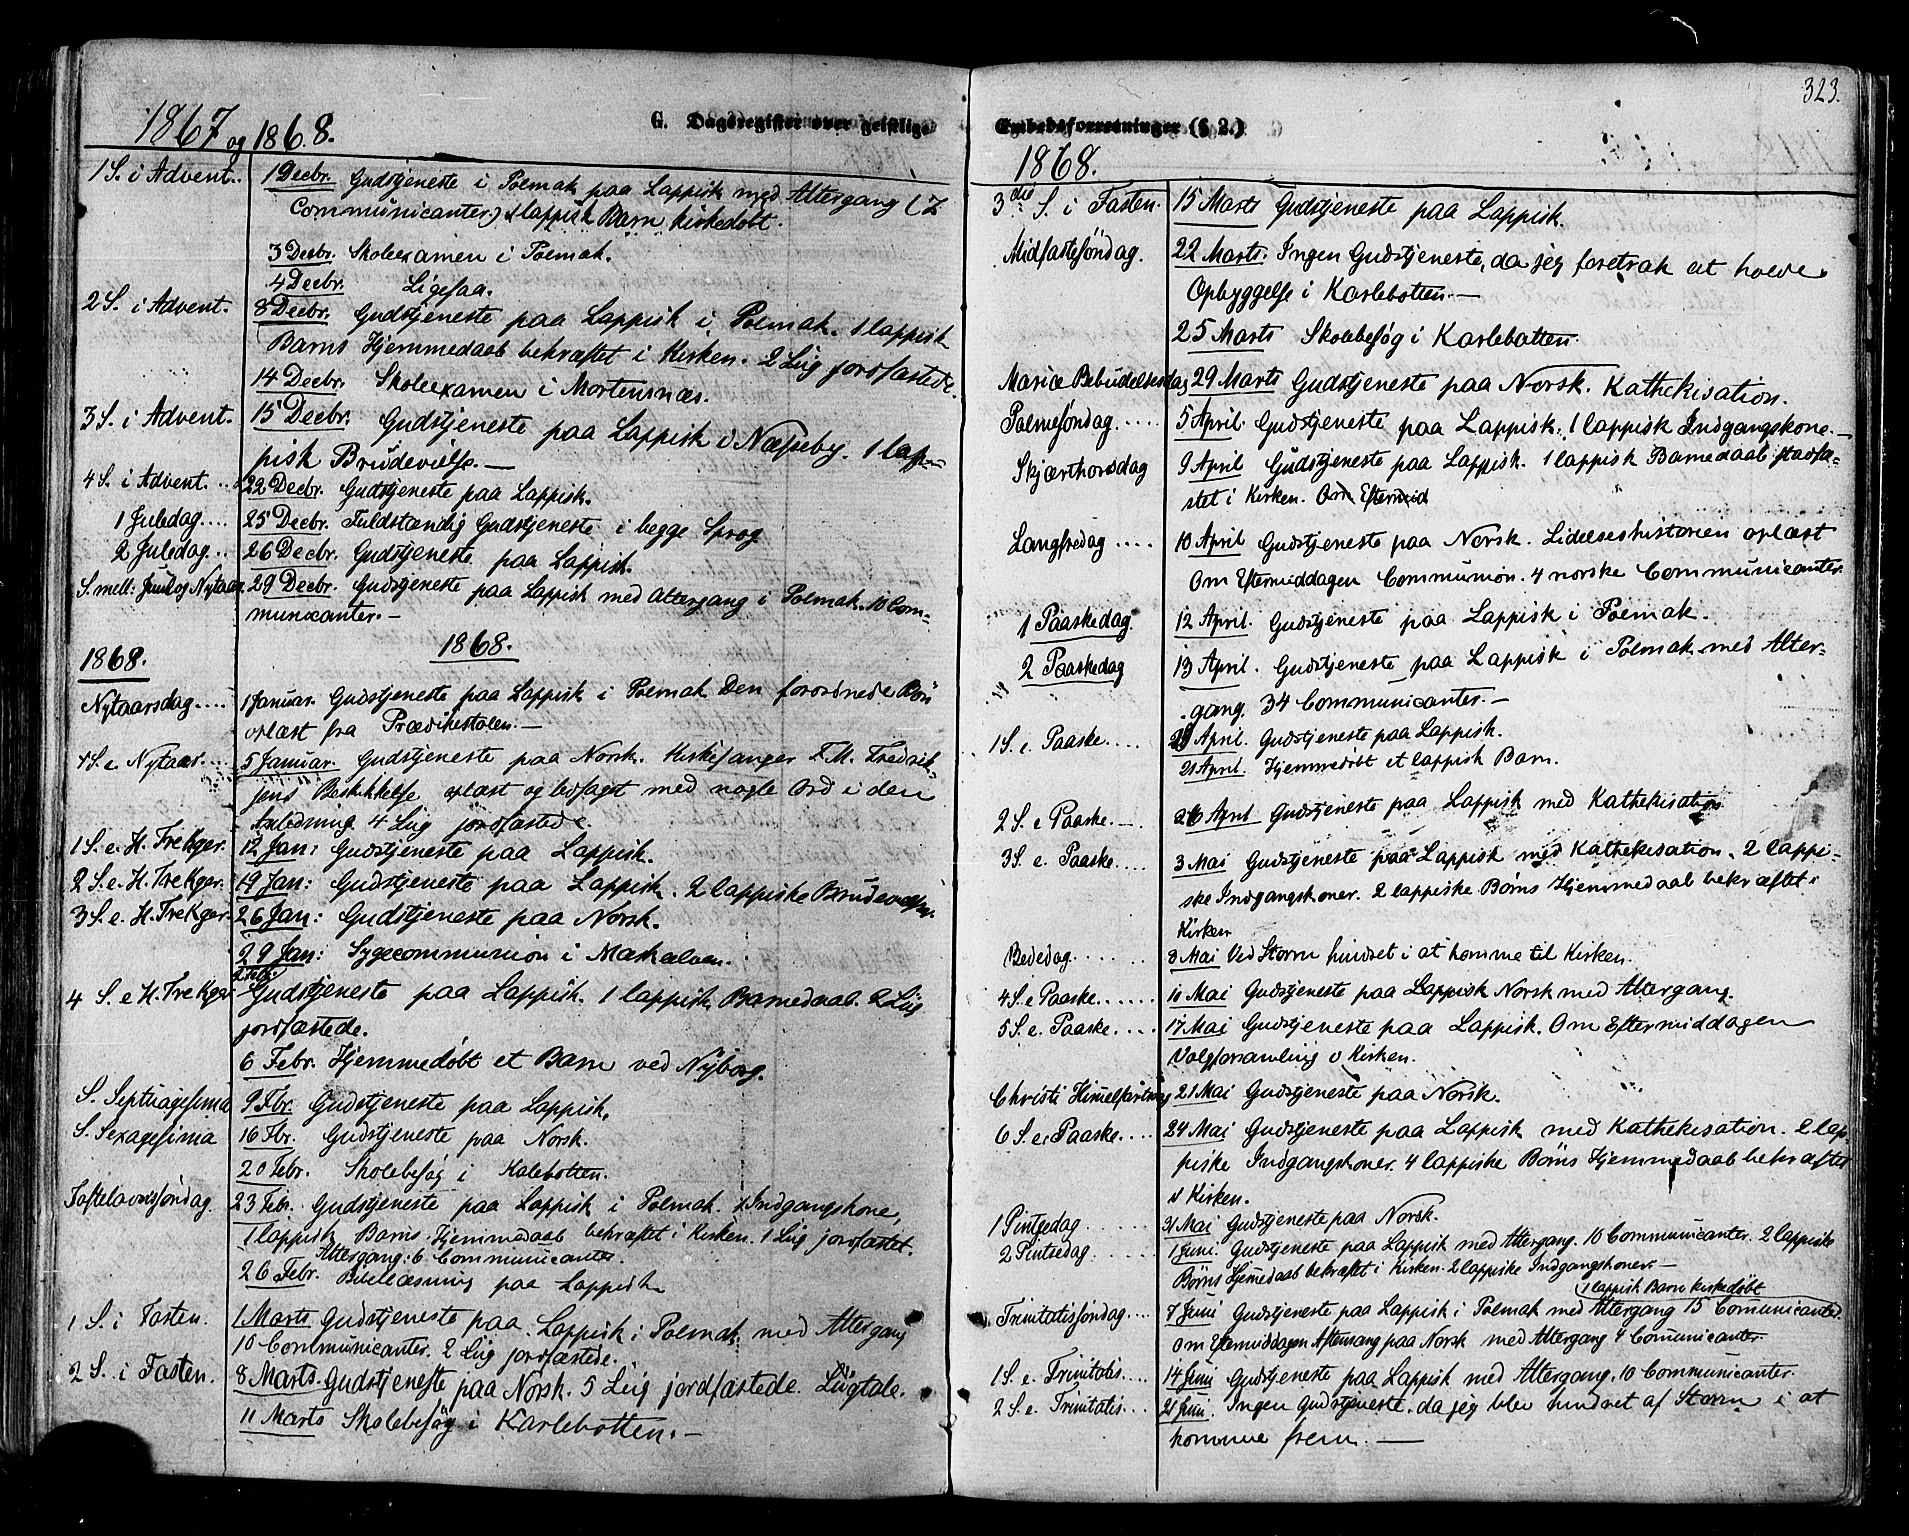 323.
G. Dagsregister over geistlige
Embedsforretninger (§ 2.)
1867 og 1868.
1 S. i Advent.. 1 Decbr. Gudstjeneste i Polmak paa Lappisk med Altergang (7
Communicanter) 1 lappisk Barn kirkedøbt.
3 Decbr. Skoleexamen i Polmak.
4 Decbr. Ligesaa.
2 S. i Advent. 8 Decbr. Gudstjeneste paa Lappisk i Polmak. 1 lappisk
Barns Hjemmedaab bekræftet i Kirken. 2 Liig jordfæstede.
14 Decbr. Skoleexamen i Mortensnæs.
3 S. i Advent. 15 Decbr. Gudstjeneste paa Lappisk i Næsseby. 1 lap-
pisk Brudevielse. —
4 S. i Advent. .. 22 Decbr. Gudstjeneste paa Lappisk.
1 Juledag.... 25 Decbr. Fuldstændig Gudstjeneste i begge Sprog
2 Juledag... 26 Decbr. Gudstjeneste paa Lappisk.
S. mell: Juul og Nytaar. 29 Decbr. Gudstjeneste paa Lappisk med Altergang i Polmak. 10 Com-
municanter. —
1868. 1868.
Nytaarsdag.... 1 Januar. Gudstjeneste paa Lappisk i Polmak Den forordnede Bøn
oplæst fra Prædikestolen. —
1 S. e Nytaar... 5 Januar. Gudstjeneste paa Norsk. Kirkesanger F. M. Fredrik-
sens Beskikkelse oplæst og ledsaget med nogle Ord i den
Anledning. 4 Liig jordfæstede.
1 S. e. H. Tre Kger. 12 Jan: Gudstjeneste paa Lappisk.
2 S. e. H. Tre Kger. 19 Jan: Gudstjeneste paa Lappisk. 2 lappiske Brudevielser.
3 S. e. H. Tre Kger. 26 Jan: Gudstjeneste paa Norsk.
29 Jan: Sygecommunion i Maskelven.
2 Febr.
4 S. e H. Tre Kger. Gudstjeneste paa Lappisk. 1 lappisk Barnedaab. 2 Liig
jordfæstede.
6 Febr. Hjemmedøbt et Barn ved Nyborg.
S. Septuagesima 9 Fbr. Gudstjeneste paa Lappisk.
S. Sexagesima 16 Fbr. Gudstjeneste paa Norsk.
20 Febr. Skolebesøg i Kalebotten.
Fastelavnssøndag. 23 Febr. Gudstjeneste paa Lappisk i Polmak. 1 Indgangskone,
1 lappisk Barns Hjemmedaab bekræftet i Kirken. 1 Liig jordfæstet.
Altergang: 6 Communicanter.
26 Febr. Bibellæsning paa Lappisk
1 S. i Fasten. 1 Marts Gudstjeneste paa Lappisk i Polmak med Altergang
10 Communicanter. 2 Liig jordfæstede.
2 S. i Fasten. 8 Marts. Gudstjeneste paa Norsk. 5 Liig jordfæstede. Liigtale.
11 Marts Skolebesøg i Karlebotten. —
1868.
3die S. i Fasten. 15 Marts Gudstjeneste paa Lappisk.
Midfastesøndag. 22 Marts. Ingen Gudstjeneste, da jeg foretrak at holde
Opbyggelse i Karlebotten. —
25 Marts Skolebesøg i Karlebotten.
Mariæ Bebudelsesdag 29 Marts Gudstjeneste paa Norsk. Kathekisation.
Palmesøndag.... 5 April. Gudstjeneste paa Lappisk. 1 lappisk Indgangskone. —
Skjærthorsdag 9 April Gudstjeneste paa Lappisk. 1 lappisk Barnedaab stadfæ-
stet i Kirken. Om Eftermid
Langfredag ..... 10 April Gudstjeneste paa Norsk. Lidelseshistorien oplæst
Om Eftermiddagen Communion. 4 norske Communicanter.
1 Paaskedag. 12 April. Gudstjeneste paa Lappisk i Polmak.
2 Paaskedag 13 April. Gudstjeneste paa Lappisk i Polmak med Alter-
gang. 34 Communicanter. —
1 S. e. Paaske.... April. Gudstjeneste paa Lappisk.
21 April. Hjemmedøbt et lappisk Barn.
2 S. e Paaske.... 26 April Gudstjeneste paa Lappisk med Kathekisation
3 S. e. Paaske.... 3 Mai Gudstjeneste paa Lappisk med Kathekisation. 2 lappi-
ske Indgangskoner. 2 lappiske Børns Hjemmedaab bekræftet i
Kirken
Bededag....... 8 Mai Ved Storm hindret i at komme til Kirken.
4 S. e Paaske...... 10 Mai Gudstjeneste paa Lappisk Norsk med Altergang.
5 S. e. Paaske.... 17 Mai Gudstjeneste paa Lappisk. Om Eftermiddagen
Valgforsamling i Kirken.
Christi Himelfartsdag 21 Mai Gudstjeneste paa Norsk.
6 S. e. Paaske.... 24 Mai Gudstjeneste paa Lappisk med Kathekisation. 2 lap-
piske Indgangskoner. 4 lappiske Børns Hjemmedaab bekræftet
i Kirken.
1 Pintsedag...... 31 Mai Gudstjeneste paa Norsk.
2 Pintsedag..... 1 Juni. Gudstjeneste paa Lappisk med Altergang. 10 Communicanter. 2 lappiske
Børns Hjemedaab bekræftet i Kirken. 2 lappiske Indgangskoner. —
1 lappisk Barn kirkedøbt
Trinitatissøndag... 7 Juni Gudstjeneste paa Lappisk i Polmak med Altergang 15 Comunicanter.
Om Eftermiddagen Aftensang paa Norsk med Altergang 4 Comunicanter.
1 S. e. Trinitatis.... 14 Juni Gudstjeneste paa Lappisk med Altergang. 10 Communicanter.
2 S. e. Trinitatis... 21 Juni. Ingen Gudstjeneste, da jeg blev hindret af Storm i at
komme frem. —